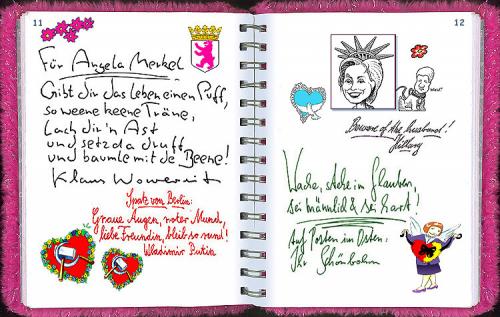 11
Für Angela Merkel
Gibt dir das Leben einen Puff,
so weene keene Träne,
lach dir'n Ast
und setz da druff
und baumle mit de Beene!
Klaus Wowereit
Spatz von Berlin:
Graue Augen, roter Mund,
liebe Freundin, bleib so rund!
Wladimir Putin
12
Beware of the husband!
Hillary
Wache, stehe im Glauben,
sei männlich & sei hart!
Auf Posten im Osten:
Ihr Schönbohm